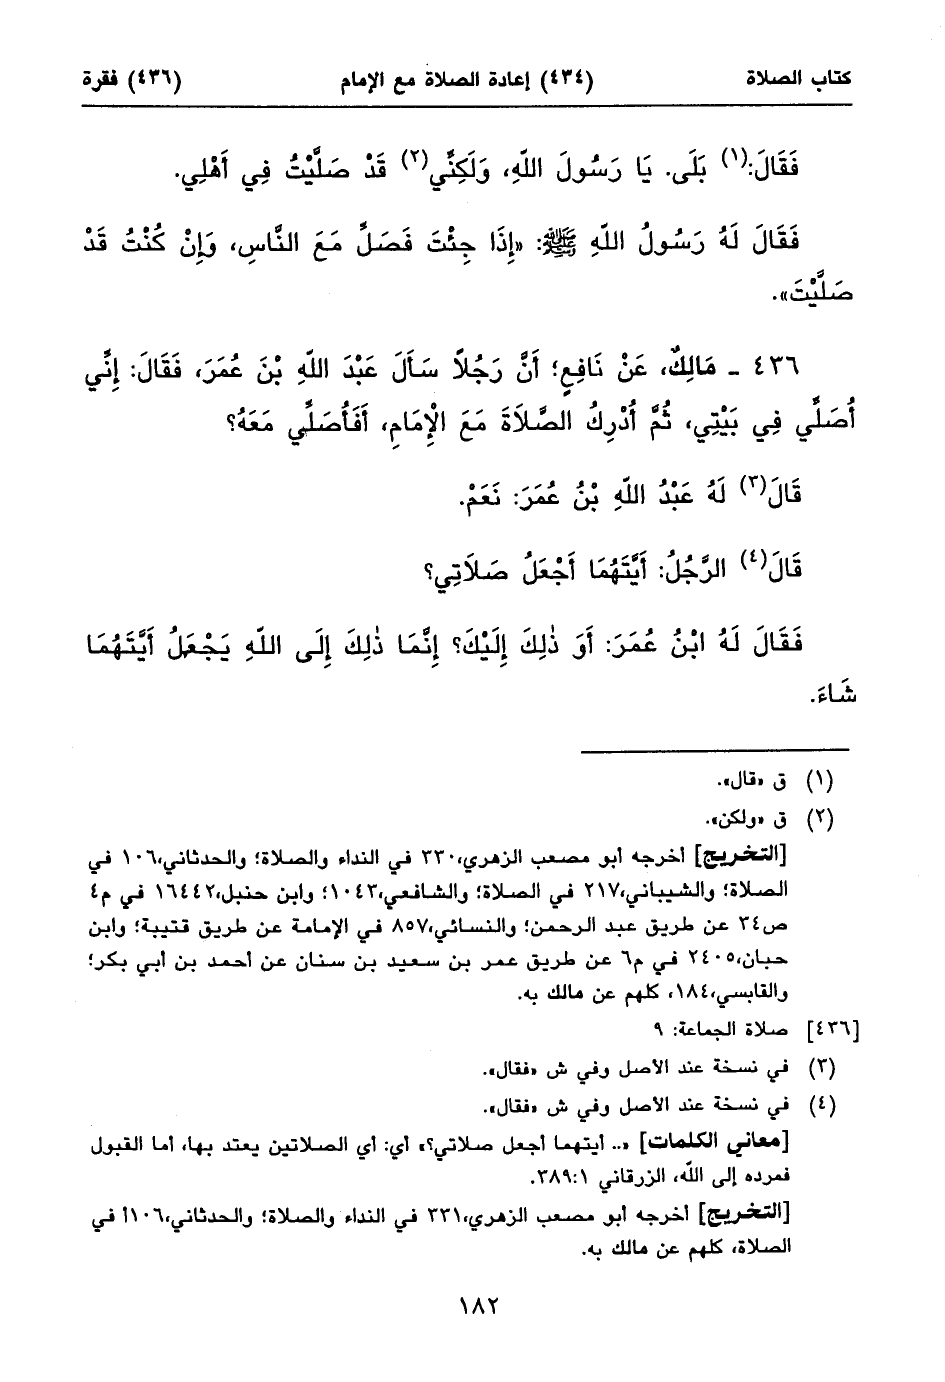 كتاب الصلاة (٤٣٤) إعادة الصلاة مع الإمام (٤٣٦) فقرة
فَقَالَ:(١) بَلَى. يَا رَسُولَ اللّهِ، وَلَكِنَّي(٢) قَدْ صَلَّيْتُ فِي أَهْلِي.
فَقَالَ لَهُ رَسُولُ اللّهِ ﷺ: «إِذَا جِئْتَ فَصَلِّ مَعَ النَّاسِ، وَإِنْ كُنْتُ قَدْ
صَلَّيْتَ».
٤٣٦ - مَالِكٌ، عَنْ نَافِعٍ؛ أَنَّ رَجُلاً سَأَلَ عَبْدَ اللّهِ بْنَ عُمَرَ، فَقَالَ: إِنِّي
أُصَلِّي فِي بَيْتِي، ثُمَّ أُدْرِكُ الصَّلاَةَ مَعَ الْإِمَامِ، أَفَأُصَلِّي مَعَهُ؟
قَالَ(٣) لَهُ عَبْدُ اللّهِ بْنُ عُمَرَ: نَعَمْ.
قَالَ(٤) الرَّجُلُ: أَيَّتَهُمَا أَجْعَلُ صَلاَتِي؟
فَقَالَ لَهُ ابْنُ عُمَرَ: أَوَ ذٰلِكَ إِلَيْكَ؟ إِنَّمَا ذٰلِكَ إِلَى اللّهِ يَجْعَلُ أَيَّتَهُمَا
شَاءَ.
(١) ق «قال».
(٢) ق «ولكن».
[التخريج] أخرجه أبو مصعب الزهري،٣٣٠ في النداء والصلاة؛ والحدثاني،١٠٦ في
الصلاة؛ والشيباني،٢١٧ في الصلاة؛ والشافعي،١٠٤٣؛ وابن حنبل،١٦٤٤٢ في م٤
ص٣٤ عن طريق عبد الرحمن؛ والنسائي،٨٥٧ في الإمامة عن طريق قتيبة؛ وابن
حبان،٢٤٠٥ في م٦ عن طريق عمر بن سعيد بن سنان عن أحمد بن أبي بكر؛
والقابسي،١٨٤، كلهم عن مالك به.
[٤٣٦] صلاة الجماعة: ٩
(٣) في نسخة عند الأصل وفي ش «فقال».
(٤) في نسخة عند الأصل وفي ش «فقال».
[معاني الكلمات] «.. أيتهما أجعل صلاتي؟» أي: أي الصلاتين يعتد بها، أما القبول
فمرده إلى الله، الزرقاني ٣٨٩:١.
[التخريج] أخرجه أبو مصعب الزهري،٣٣١ في النداء والصلاة؛ والحدثاني،١٠٦أ في
الصلاة، كلهم عن مالك به.
١٨٢